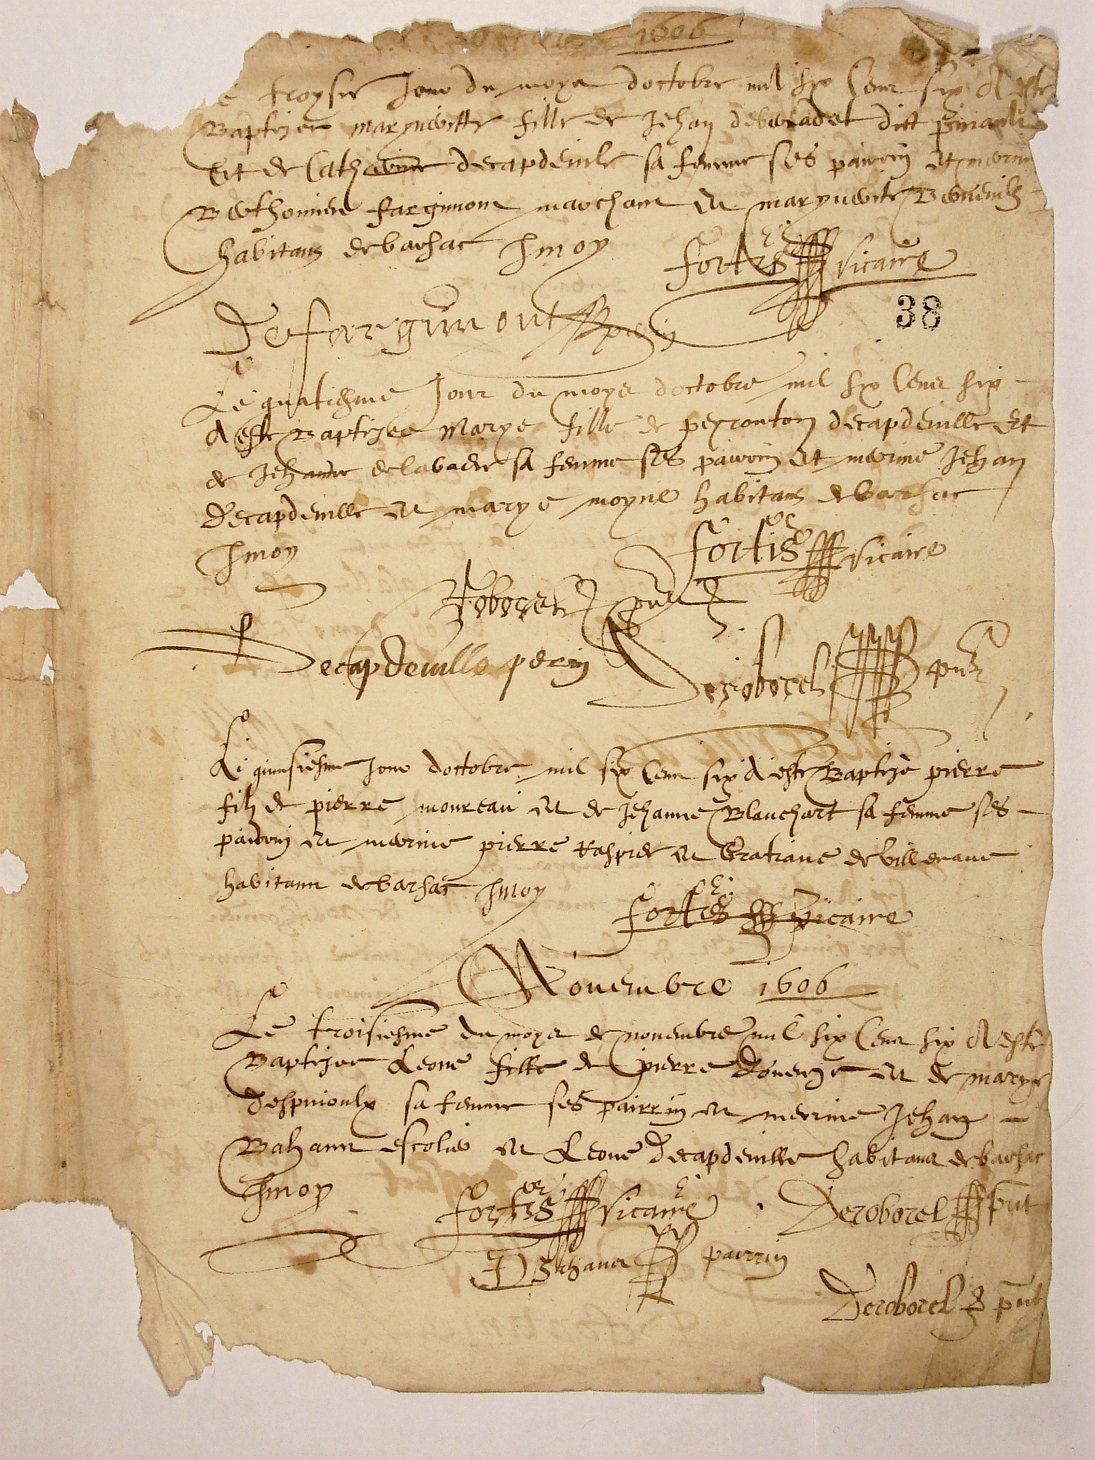 1606
troysie Jour du moys doctobre mil six Cens six A este
Baptisee margueritte fille de Jehan debaradat dict
Et de Catherine decapdevile sa femme ses pairin et merine
Berthomieu fargimont marchant et marguerite
habitans debarsac Pmoy Fortis vicaire
Defargimont
38
Le quatiesme Jour du moys doctobre mil six Cens six
A este Baptisee Marye fille de peyronton decapdeville Et
de Jehanne delabadie sa femme ses pairin et merine Jehan
decapdeville et marye moyne habitans debarsac
Pmoy Fortis vicaire
Decapdeville perin Deroborel pnt
Le quinsiesme Jour doctobre mil six Cens six A este Baptisé pierre
filz de pierre moureau et de Jehanne Blanchart sa femme ses
pairin et merine pierre et Gratiane de Villenave
habitans debarsac Pmoy
Fortis vicaire
Novembre 1606
Le troisiesme du moys de novembre mil six Cens six A este
Baptisee Leone fille de pierre et de marye
sa femme ses pairrin et merine Jehan
escolier et Leone decapdeville habitans debarsac
Pmoy Fortis vicaire Deroborel pnt
pairrin
Deroborel pnt